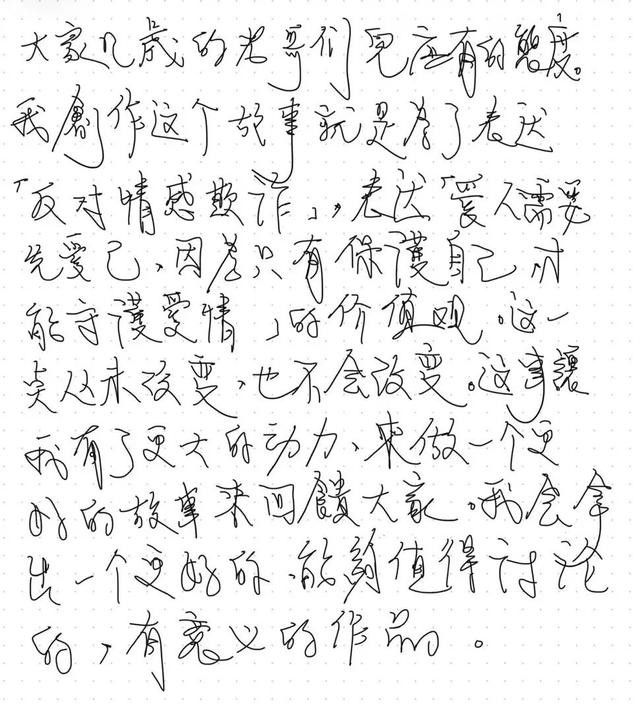 大家几歲的老哥们見应有的態度。
我創作这个故事就是為了表达
「反对情感欺诈」，表达「愛人需要
先愛己，因為只有保護自己才
能守護愛情」的价值观。这一
点从未改變，也不会改變。这事讓
我有了更大的动力、来做一个更
好的故事来回饋大家。我会拿
出一个更好的、能夠值得讨论
的，有意义的作品。